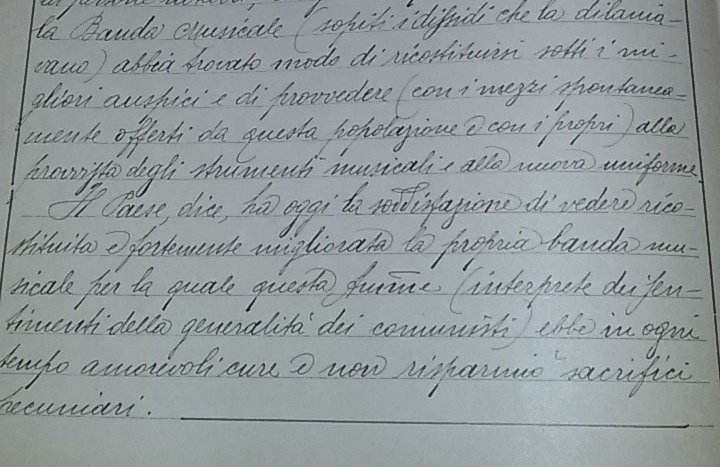 la Banda Musicale (sopiti i dissidi che la dilania-
vano) abbia trovato modo di ricostituirsi sotti i mi-
gliori auspici e di provvedere (con i mezzi spontanea-
mente offerti da questa popolazione e con i propri) alla
provvista degli strumenti musicali e alla nuova uniforme.
Il Paese, dice, ha oggi la soddisfazione di vedere rico-
stituita e fortemente migliorata la propria banda mu-
sicale per la quale questa (interprete dei sen-
timenti della generalità dei comunisti) ebbe in ogni
tempo amorevoli cure e non risparmiò sacrifici
pecuniari.